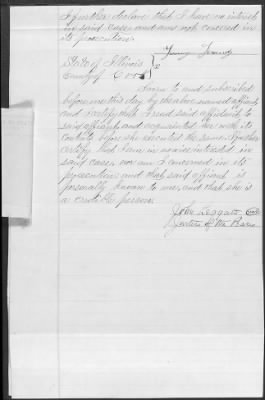 I further declare that I have no interest
in said case, and am not concerned in
its prosecution.
State of Illinois
County of Cook } SS
Sworn to and subscribed
before me this day by the above named affiant,
and I certify that I read said affidavit to
said affiant, and acquainted her with its
contents before she executed the same. I further
certify that I am in nowise interested in
said case, nor am I concerned in its
prosecution; and that said affiant is
personally known to me, and that she is
a credible person.
John
Justice of the Peace